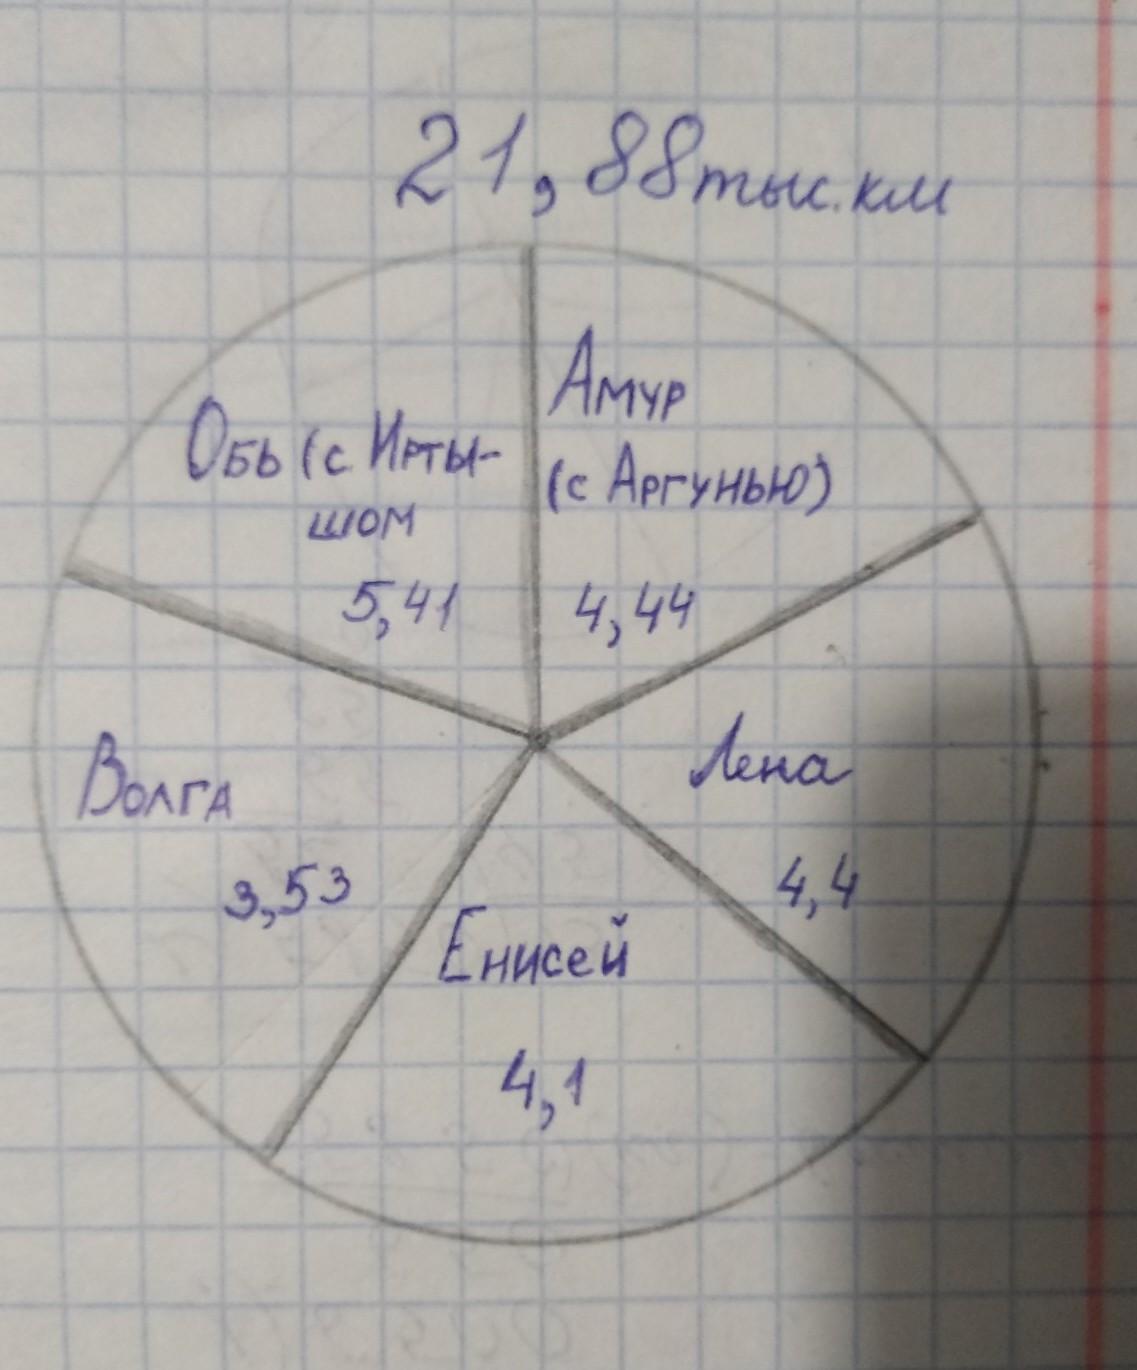 21,88тыс.км
Амур
(с Аргунью)
4,44
Обь (с Ирты-
шом
5,41
Лена
4,4
Волга
3,53
Енисей
4,1